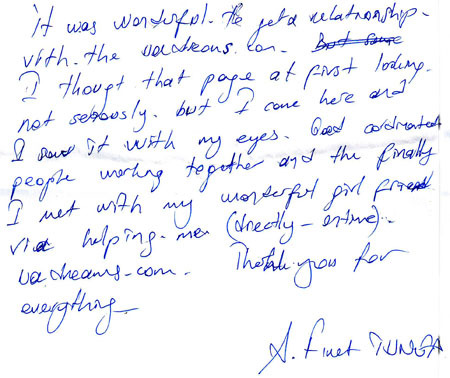 It was wonderful. To get a relationship.
with. the uadreams.com.
I thougt that page at first looking.
not seriously. but I come here and
I saw it with my eyes. Good cordinated
people working together and the finally
I met with my wonderful girl friend
via helping. men (directly-
uadreams-com. Thank you for
everything
A. Fuat TUNGA